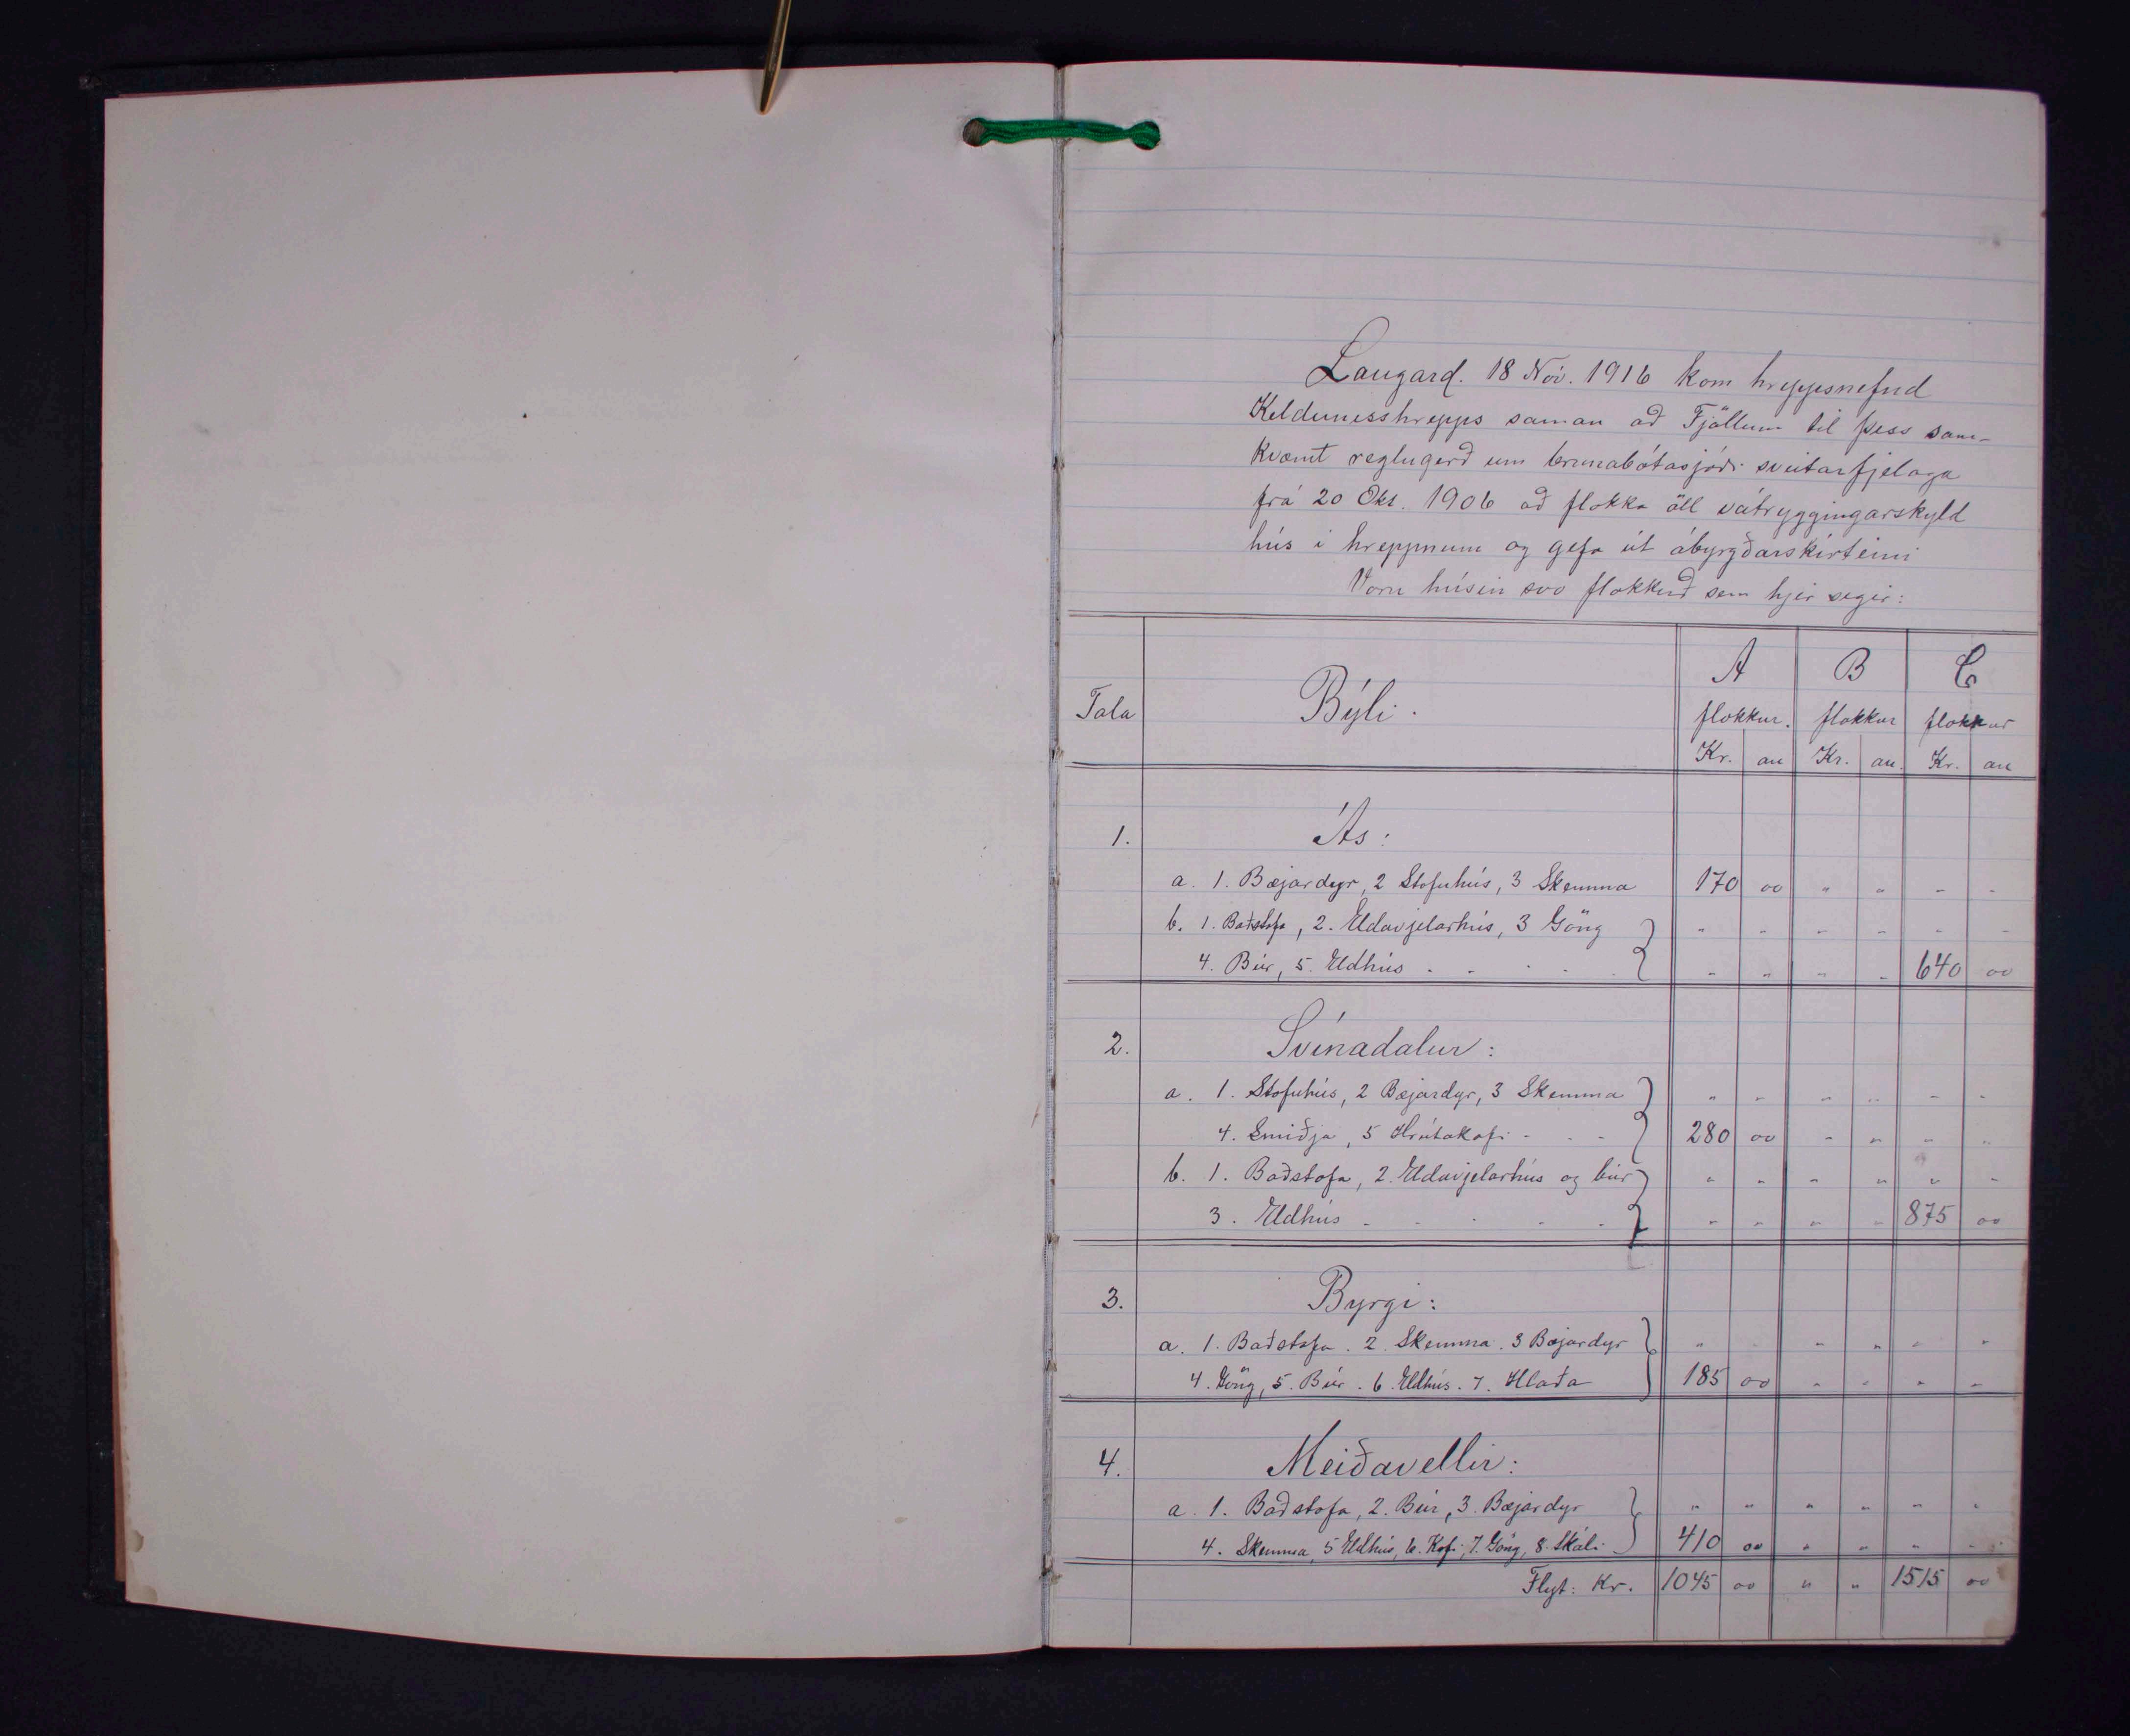 Laugard. 18 Nóv. 1916 kom hreppsnefnd
Kelduneshrepps saman að Fjöllum til þess sam-
kvæmt reglugerð um brunabótasjóði sveitarfjelaga
frá 20 Okt. 1906 að flokka öll vátryggingarskyld
hús i hreppnum og gefa út ábyrgðarskírteini
Voru húsin svo flokkuð sem hjer segir:
Tala Býli. A flokkur. B flokkur C flokkur
Kr. au Kr. au. Kr. au
1. Ás:
a. 1. Bæjardyr, 2 Stofuhús, 3 Skemma 170 00 " " " "
b. 1. Baðstofa, 2. Eldavjelarhús, 3 Göng " " " " " "
4. Búr, 5. Eldhús - - - - - " " " " 640 00
2. Svínadalur:
a. 1. Stofuhús, 2 Bæjardyr, 3 Skemma " " " " " "
4. Smiðja, 5 Hrútakofi - - - 280 00 " " " "
b. 1. Baðstofa, 2. Eldavjelarhús og búr " " " " " "
3. Eldhús - - - - - " " " " 875 00
3. Byrgi:
a. 1. Baðstofa. 2. Skemma. 3 Bæjardyr " " " " "
4. Göng, 5. Búr. 6. Eldhús. 7. Hlaða 185 00 " " " "
4. Meiðavellir:
a. 1. Baðstofa, 2. Búr, 3. Bæjardyr " " " " " "
4. Skemma, 5 Eldhús, 6. Kofi, 7. Göng, 8. Skáli 410 00 " " " "
Flyt: Kr. 1045 00 " " 1515 00